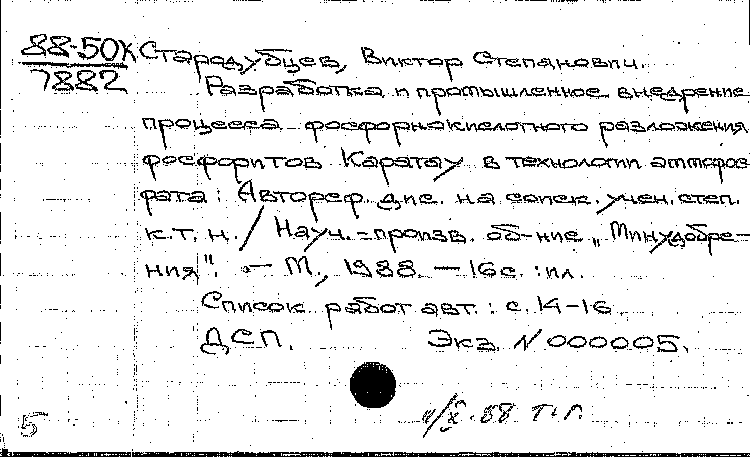 88-50К
7882
Стародубцев, Виктор Степанович.
Разработка и промышленное внедрение
процесса фосфорнокислотного разложения
фосфоритов Каратау в технологии аммофос
фата : Автореф. дис. на соиск. учен. степ.
к.т.н. / Науч.-произв. об-ние „Минудобре-
ния". — М., 1988. — 16 с. : ил.
Список работ авт. : с. 14-16.
ДСП. Экз. N 000005.
5
88 т.г.